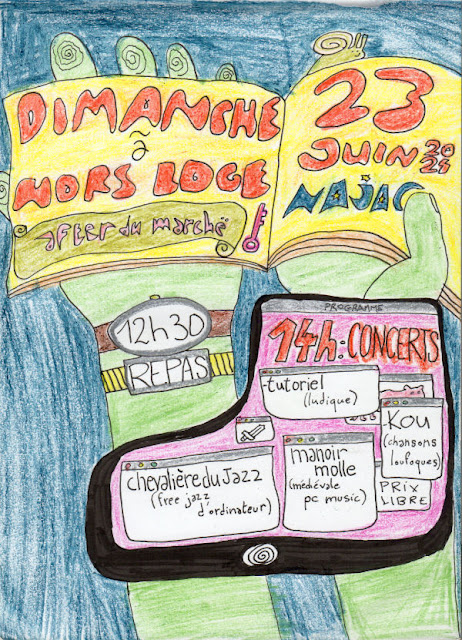 DIMANCHE
à
HORS LOGE
after du marché
23
JUIN 2024
NAJAC
12h30
REPAS
PROGRAMME
14h: CONCERTS
tutoriel
(ludique)
KOU
(chansons
loufoques)
manoir
molle
(médiévale
pc music)
chevalière du Jazz
(free jazz
d'ordinateur)
PRIX
LIBRE